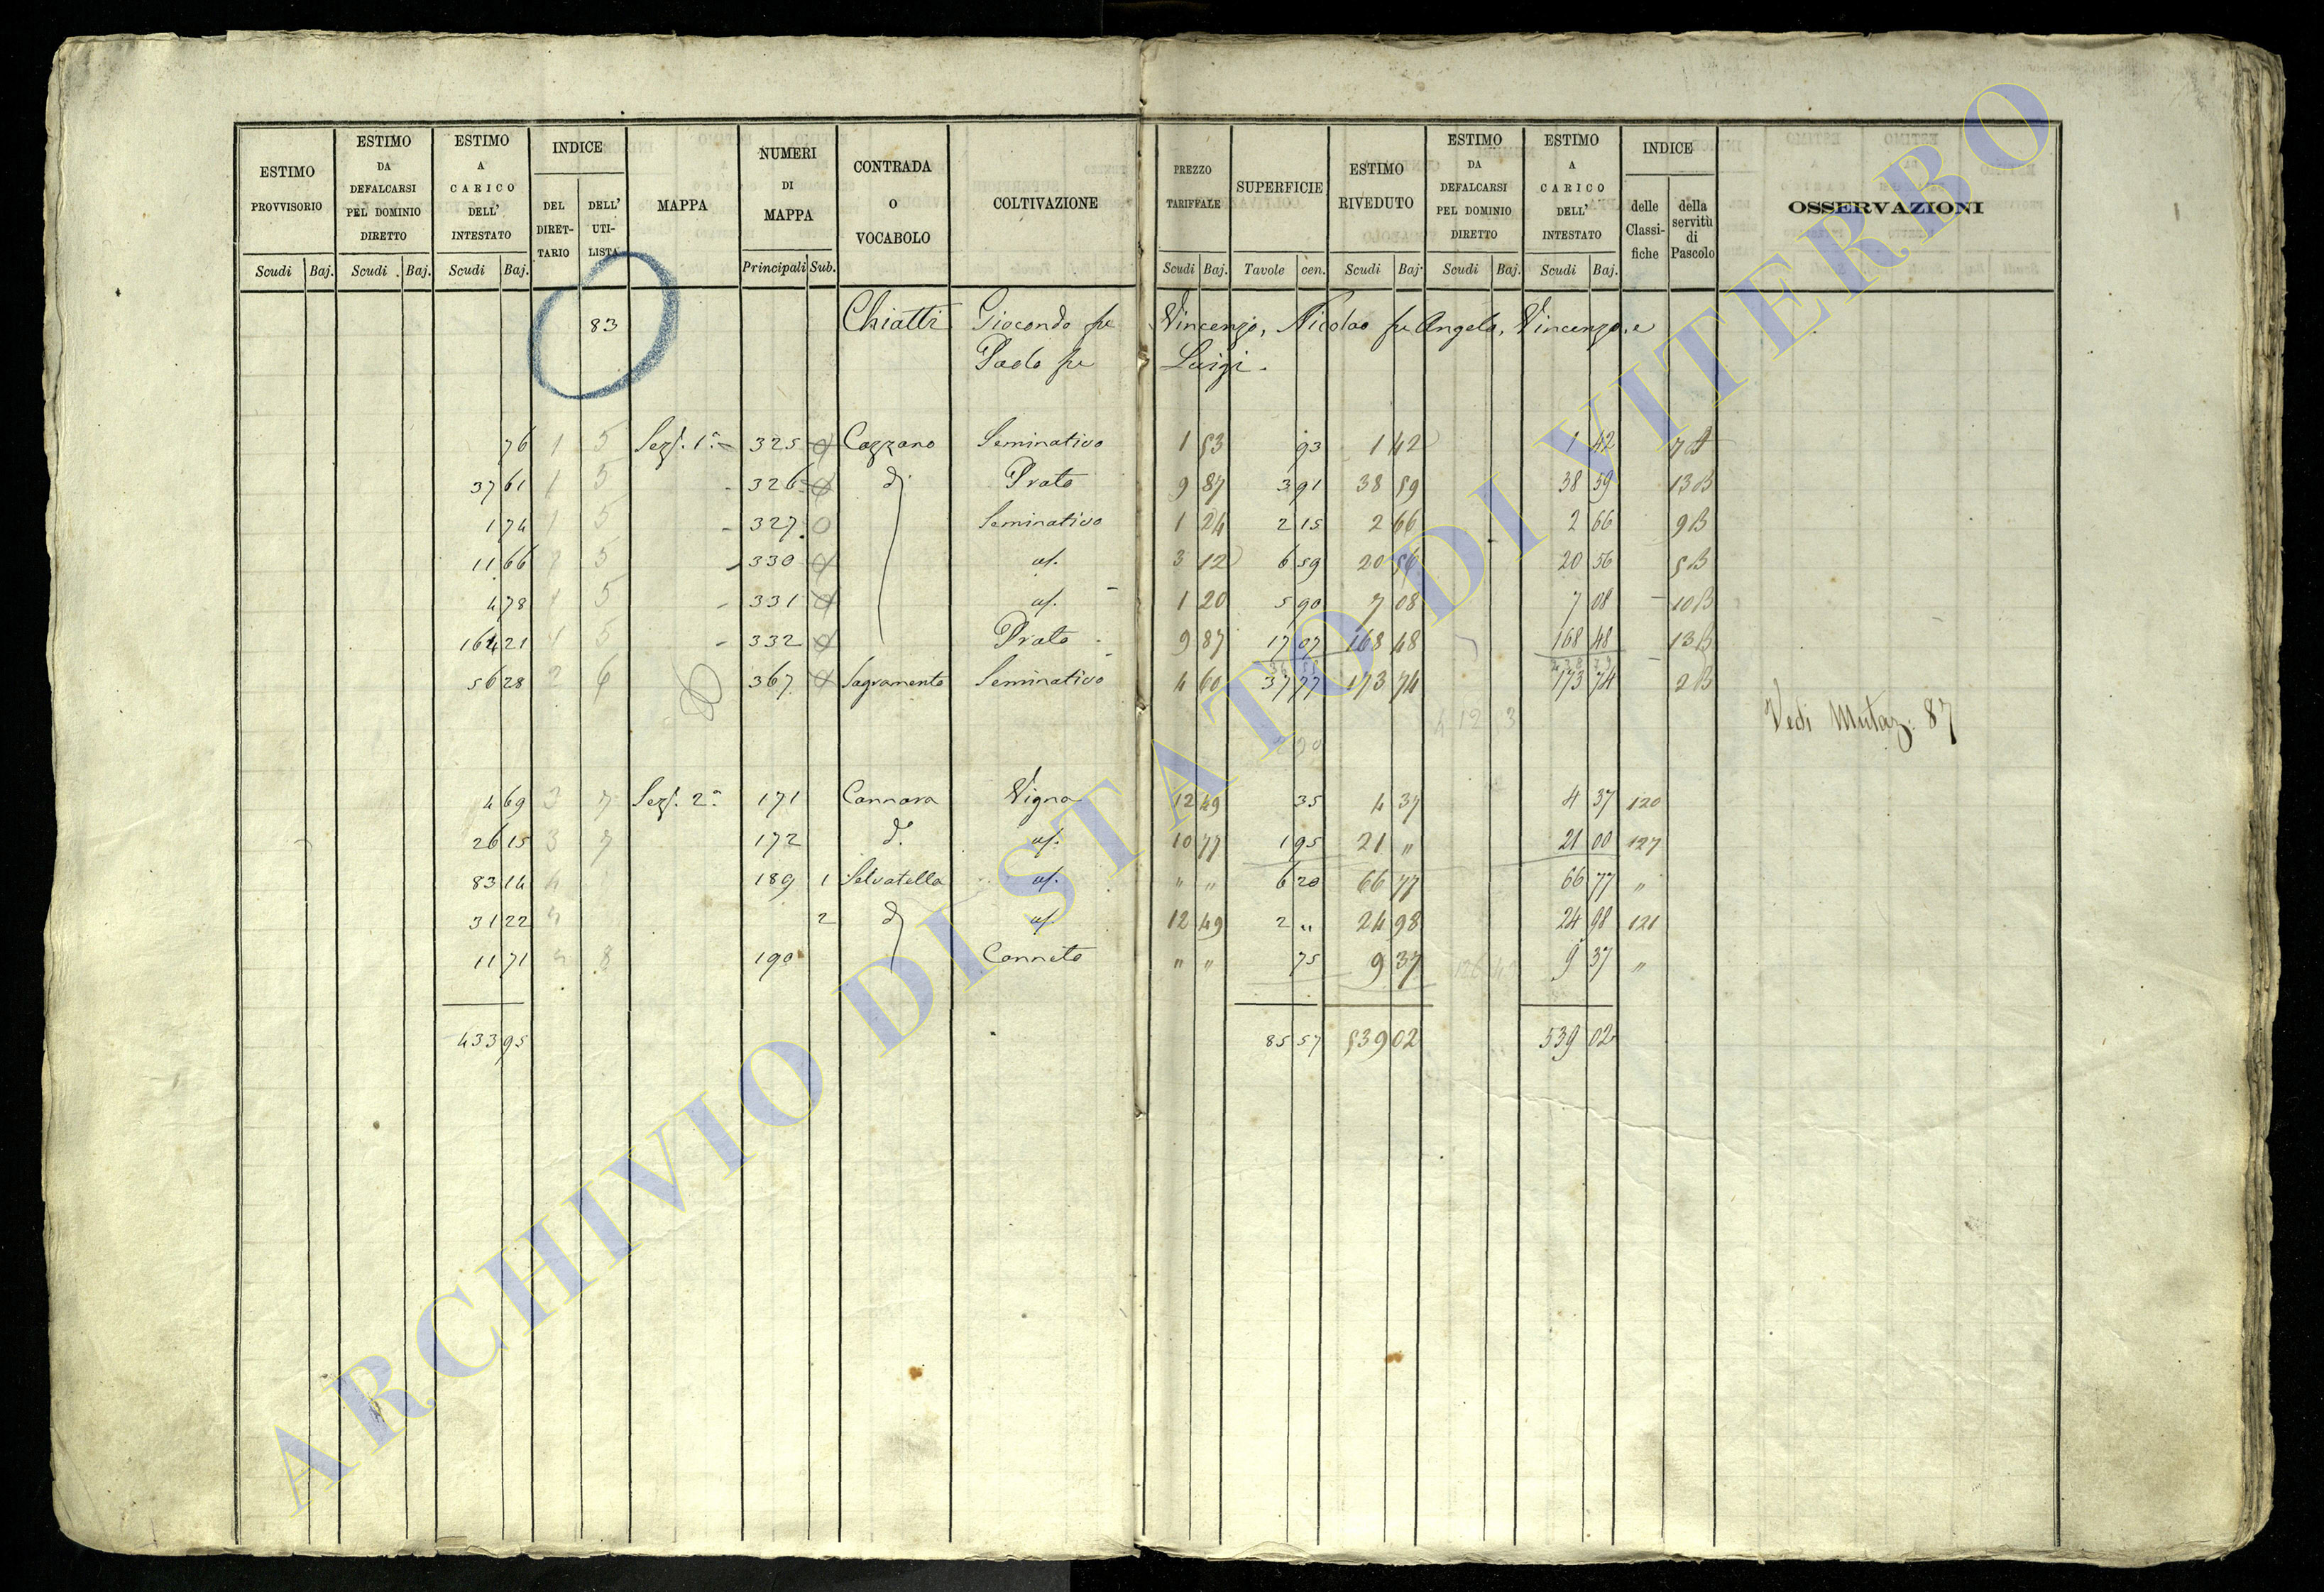 ESTIMO PROVVISORIO Scudi Baj.
ESTIMO DA DEFALCARSI PEL DOMINIO DIRETTO Scudi Baj.
ESTIMO A CARICO DELL' INTESTATO Scudi Baj.
INDICE DEL DIRETTARIO DELL' UTILISTA
MAPPA
NUMERI DI MAPPA Principali Sub.
CONTRADA O VOCABOLO
COLTIVAZIONE
PREZZO TARIFFALE Scudi Baj.
SUPERFICIE Tavole cen.
ESTIMO RIVEDUTO Scudi Baj.
ESTIMO DA DEFALCARSI PEL DOMINIO DIRETTO Scudi Baj.
ESTIMO A CARICO DELL' INTESTATO Scudi Baj.
INDICE delle Classifiche della servitù di Pascolo
OSSERVAZIONI
83 Chiatti Giocondo fu Vincenzo, Nicolao fu Angelo, Vincenzo, e
Paolo fu Luigi.
76 1 5 Sezf. 1ª 325 Cazzano Seminativo 1 53 93 1 42 1 42 7 A
37 61 1 5 326 dº Prato 9 87 3 91 38 59 38 59 13 B
1 74 1 5 327 Seminativo 1 24 2 15 2 66 2 66 9 B
11 66 1 5 330 3 12 6 59 20 56 20 56 5 B
4 78 1 5 331 1 20 5 90 7 08 7 08 10 B
164 21 1 5 332 Prato 9 87 17 07 168 48 168 48 13 B
56 28 2 6 367 Sagramento Seminativo 4 60 37 77 173 74 173 74 2 B
Vedi Mutaz: 87
4 69 3 7 Sezf. 2ª 171 Cannara Vigna 12 49 35 4 37 4 37 120
26 15 3 7 172 dº 10 77 1 95 21 " 21 00 127
83 14 189 1 Selvatella " " 6 20 66 77 66 77 "
31 22 2 dº 12 49 2 " 24 98 24 98 121
11 71 8 190 Canneto " " 75 9 37 9 37 "
433 95 85 57 539 02 539 02
ARCHIVIO DI STATO DI VITERBO